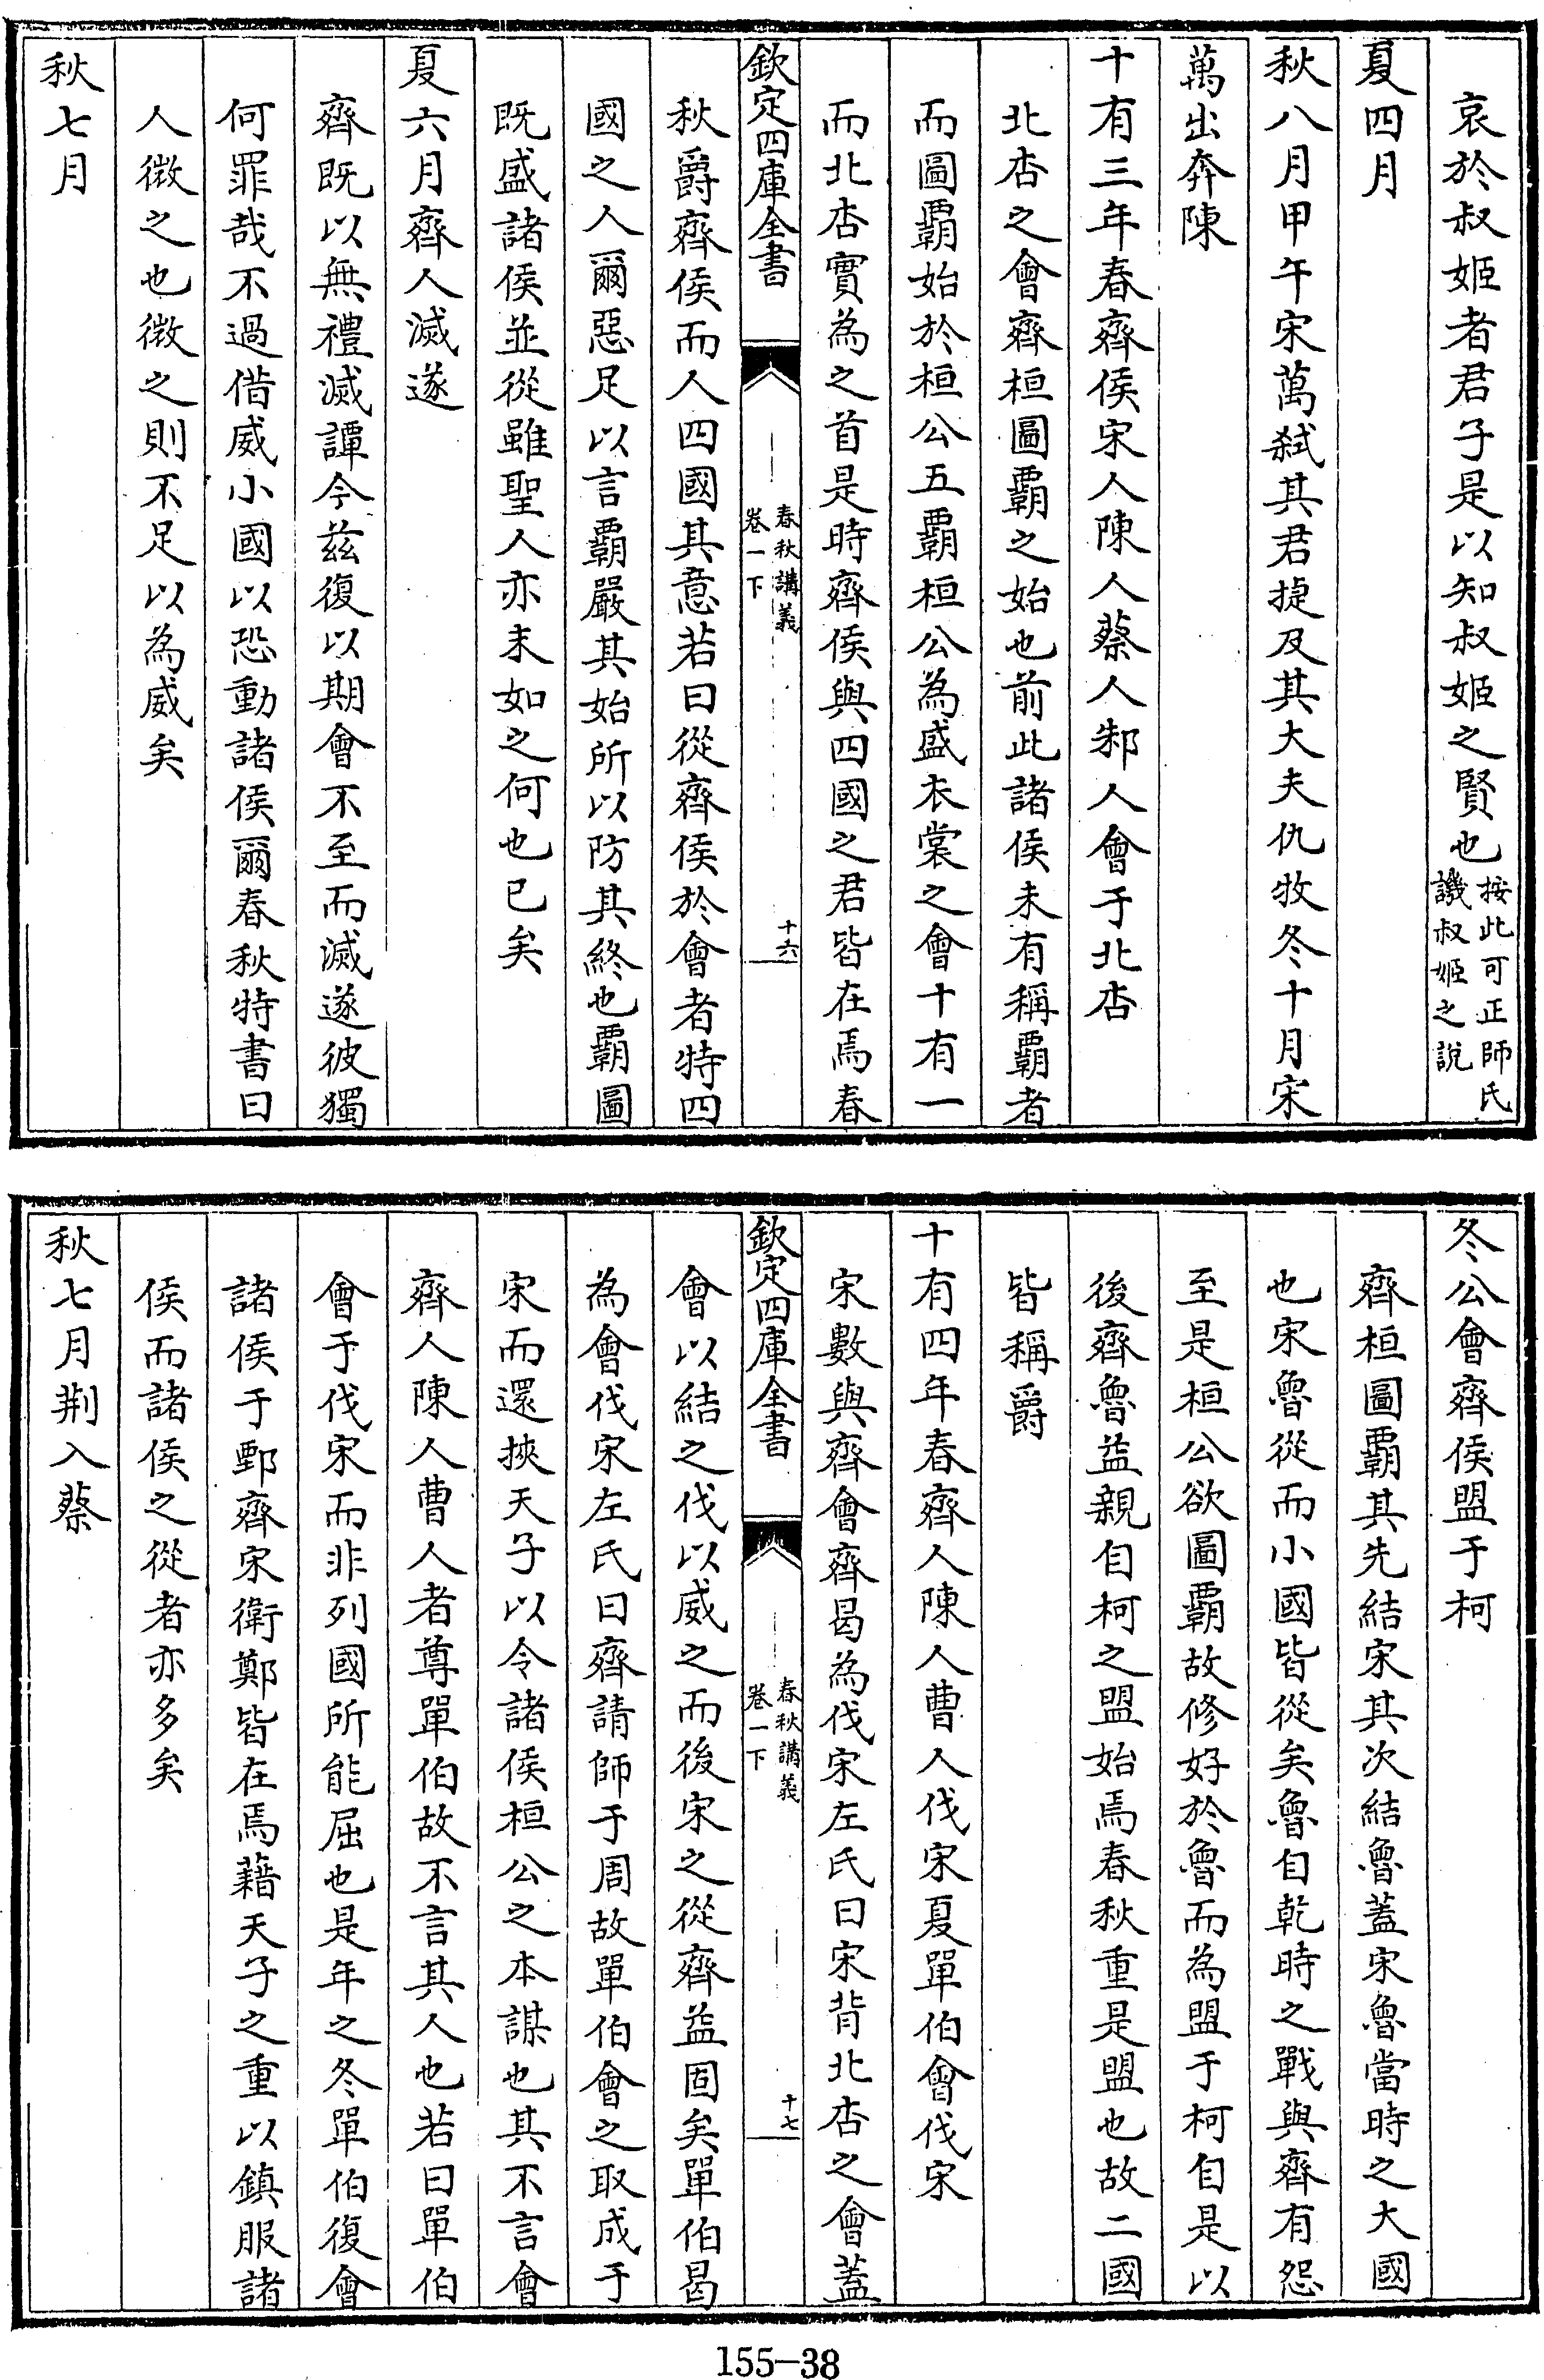 哀於叔姬者君子是以知叔姬之賢也按此可正師氏譏叔姬之說
夏四月
秋八月甲午宋萬弑其君捷及其大夫仇牧冬十月宋
萬出奔陳
十有三年春齊侯宋人陳人蔡人邾人會于北杏
北杏之會齊桓圖覇之始也前此諸侯未有稱覇者
而圖覇始於桓公五覇桓公為盛衣裳之會十有一
而北杏實為之首是時齊侯與四國之君皆在焉春
欽定四庫全書
春秋講義
卷一下
十六
秋爵齊侯而人四國其意若曰從齊侯於會者特四
國之人爾惡足以言覇嚴其始所以防其終也覇圖
既盛諸侯並從雖聖人亦末如之何也已矣
夏六月齊人滅遂
齊既以無禮滅譚今兹復以期會不至而滅遂彼獨
何罪哉不過借威小國以恐動諸侯爾春秋特書曰
人微之也微之則不足以為威矣
秋七月
冬公會齊侯盟于柯
齊桓圖覇其先結宋其次結魯蓋宋魯當時之大國
也宋魯從而小國皆從矣魯自乾時之戰與齊有怨
至是桓公欲圖覇故修好於魯而為盟于柯自是以
後齊魯益親自柯之盟始焉春秋重是盟也故二國
皆稱爵
十有四年春齊人陳人曹人伐宋夏單伯會伐宋
宋數與齊會齊曷為伐宋左氏曰宋背北杏之會蓋
欽定四庫全書
春秋講義
卷一下
十七
會以結之伐以威之而後宋之從齊益固矣單伯曷
為會伐宋左氏曰齊請師于周故單伯會之取成于
宋而還挾天子以令諸侯桓公之本謀也其不言會
齊人陳人曹人者尊單伯故不言其人也若曰單伯
會于伐宋而非列國所能屈也是年之冬單伯復會
諸侯于鄄齊宋衛鄭皆在焉藉天子之重以鎮服諸
侯而諸侯之從者亦多矣
秋七月荆入蔡
155-38